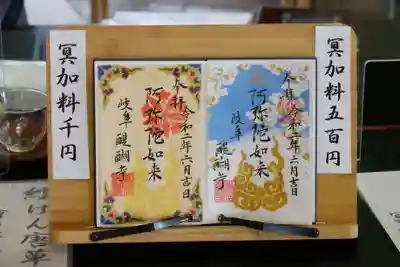 冥加料五百円
奉拝
令和二年六月吉日
阿弥陀如来
岐阜 醍醐寺
奉拝
令和二年六月吉日
阿弥陀如来
岐阜 醍醐寺
冥加料千円